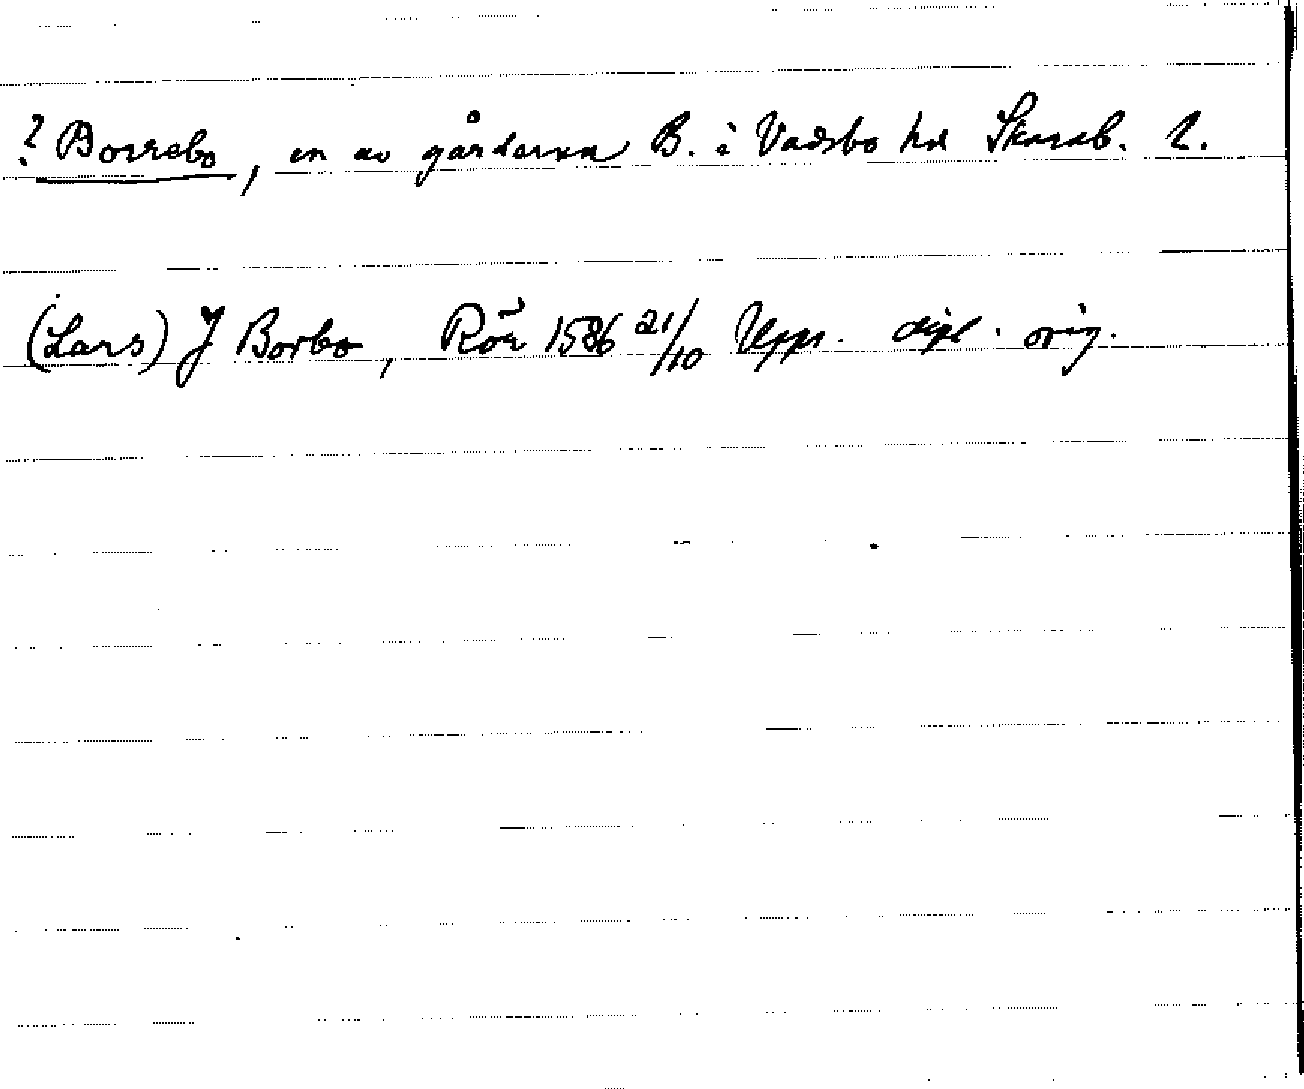 ? Borrebo, en av gårdarna B. i Vadsbo hd Skarab. l.
(Lars) J Borbo, Rör 1586 21/10 Upps. dipl. orig.